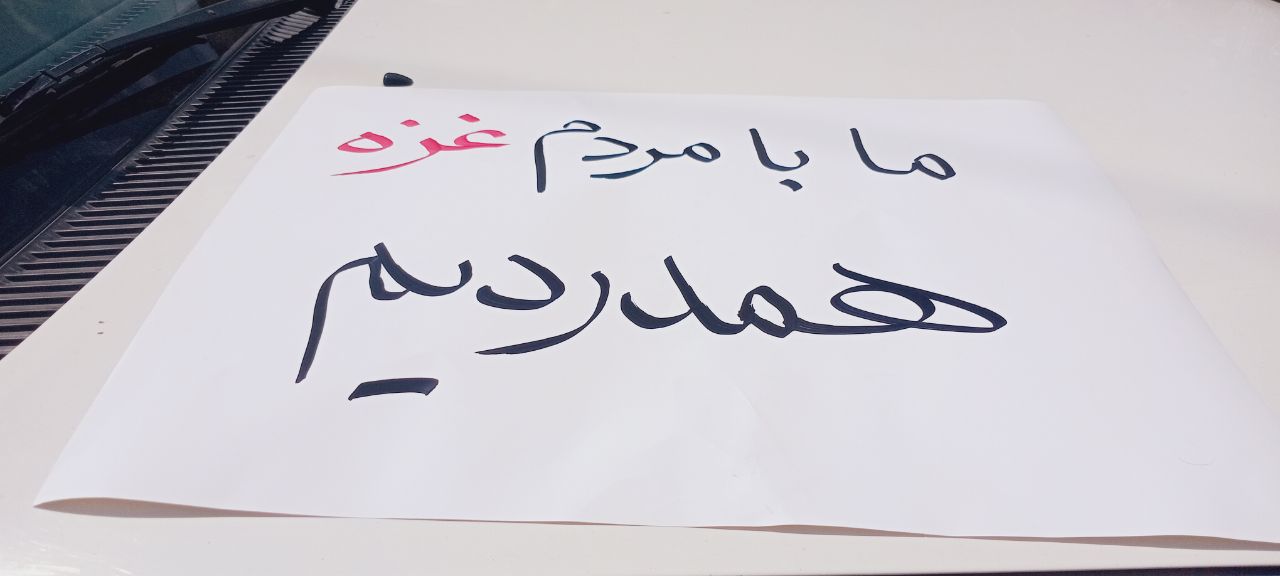 ما با مردم غزه
همدردیم